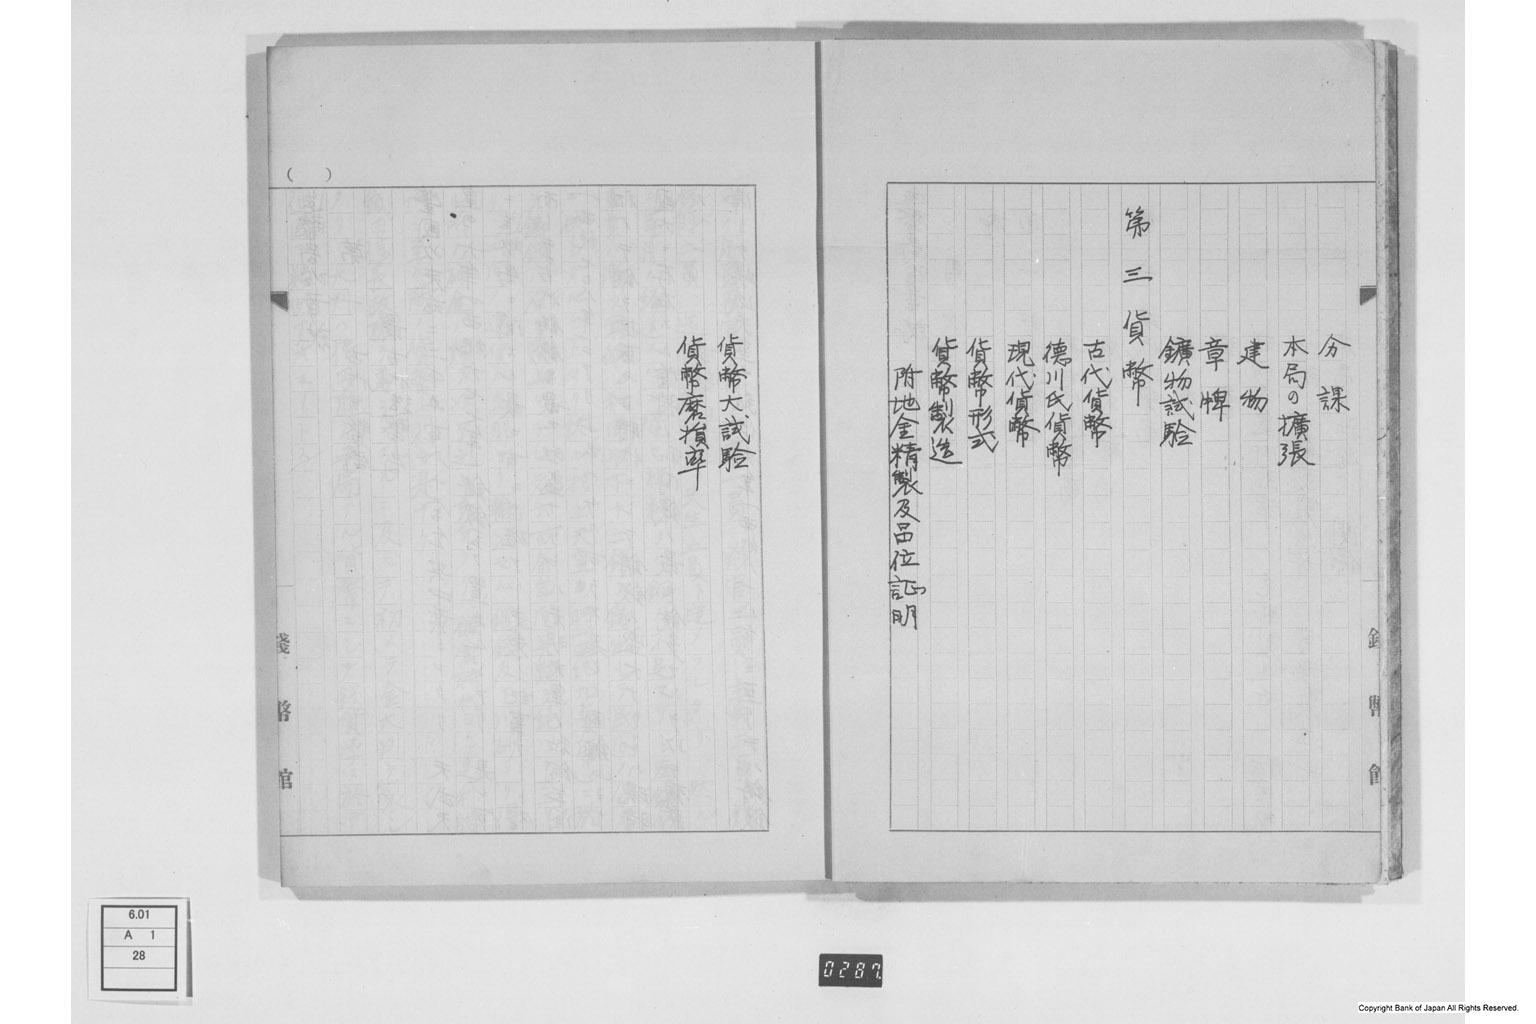 分課
本局の擴張
建物
章牌
鑛物試驗
第三貨幣
古代貨幣
德川氏貨幣
現代貨幣
貨幣形式
貨幣製造
附地金精製及品位証明
錢幣館
貨幣大試驗
貨幣磨損率
( )
錢幣館
6.01
A 1
28
0287
Copyright Bank of Japan All Rights Reserved.